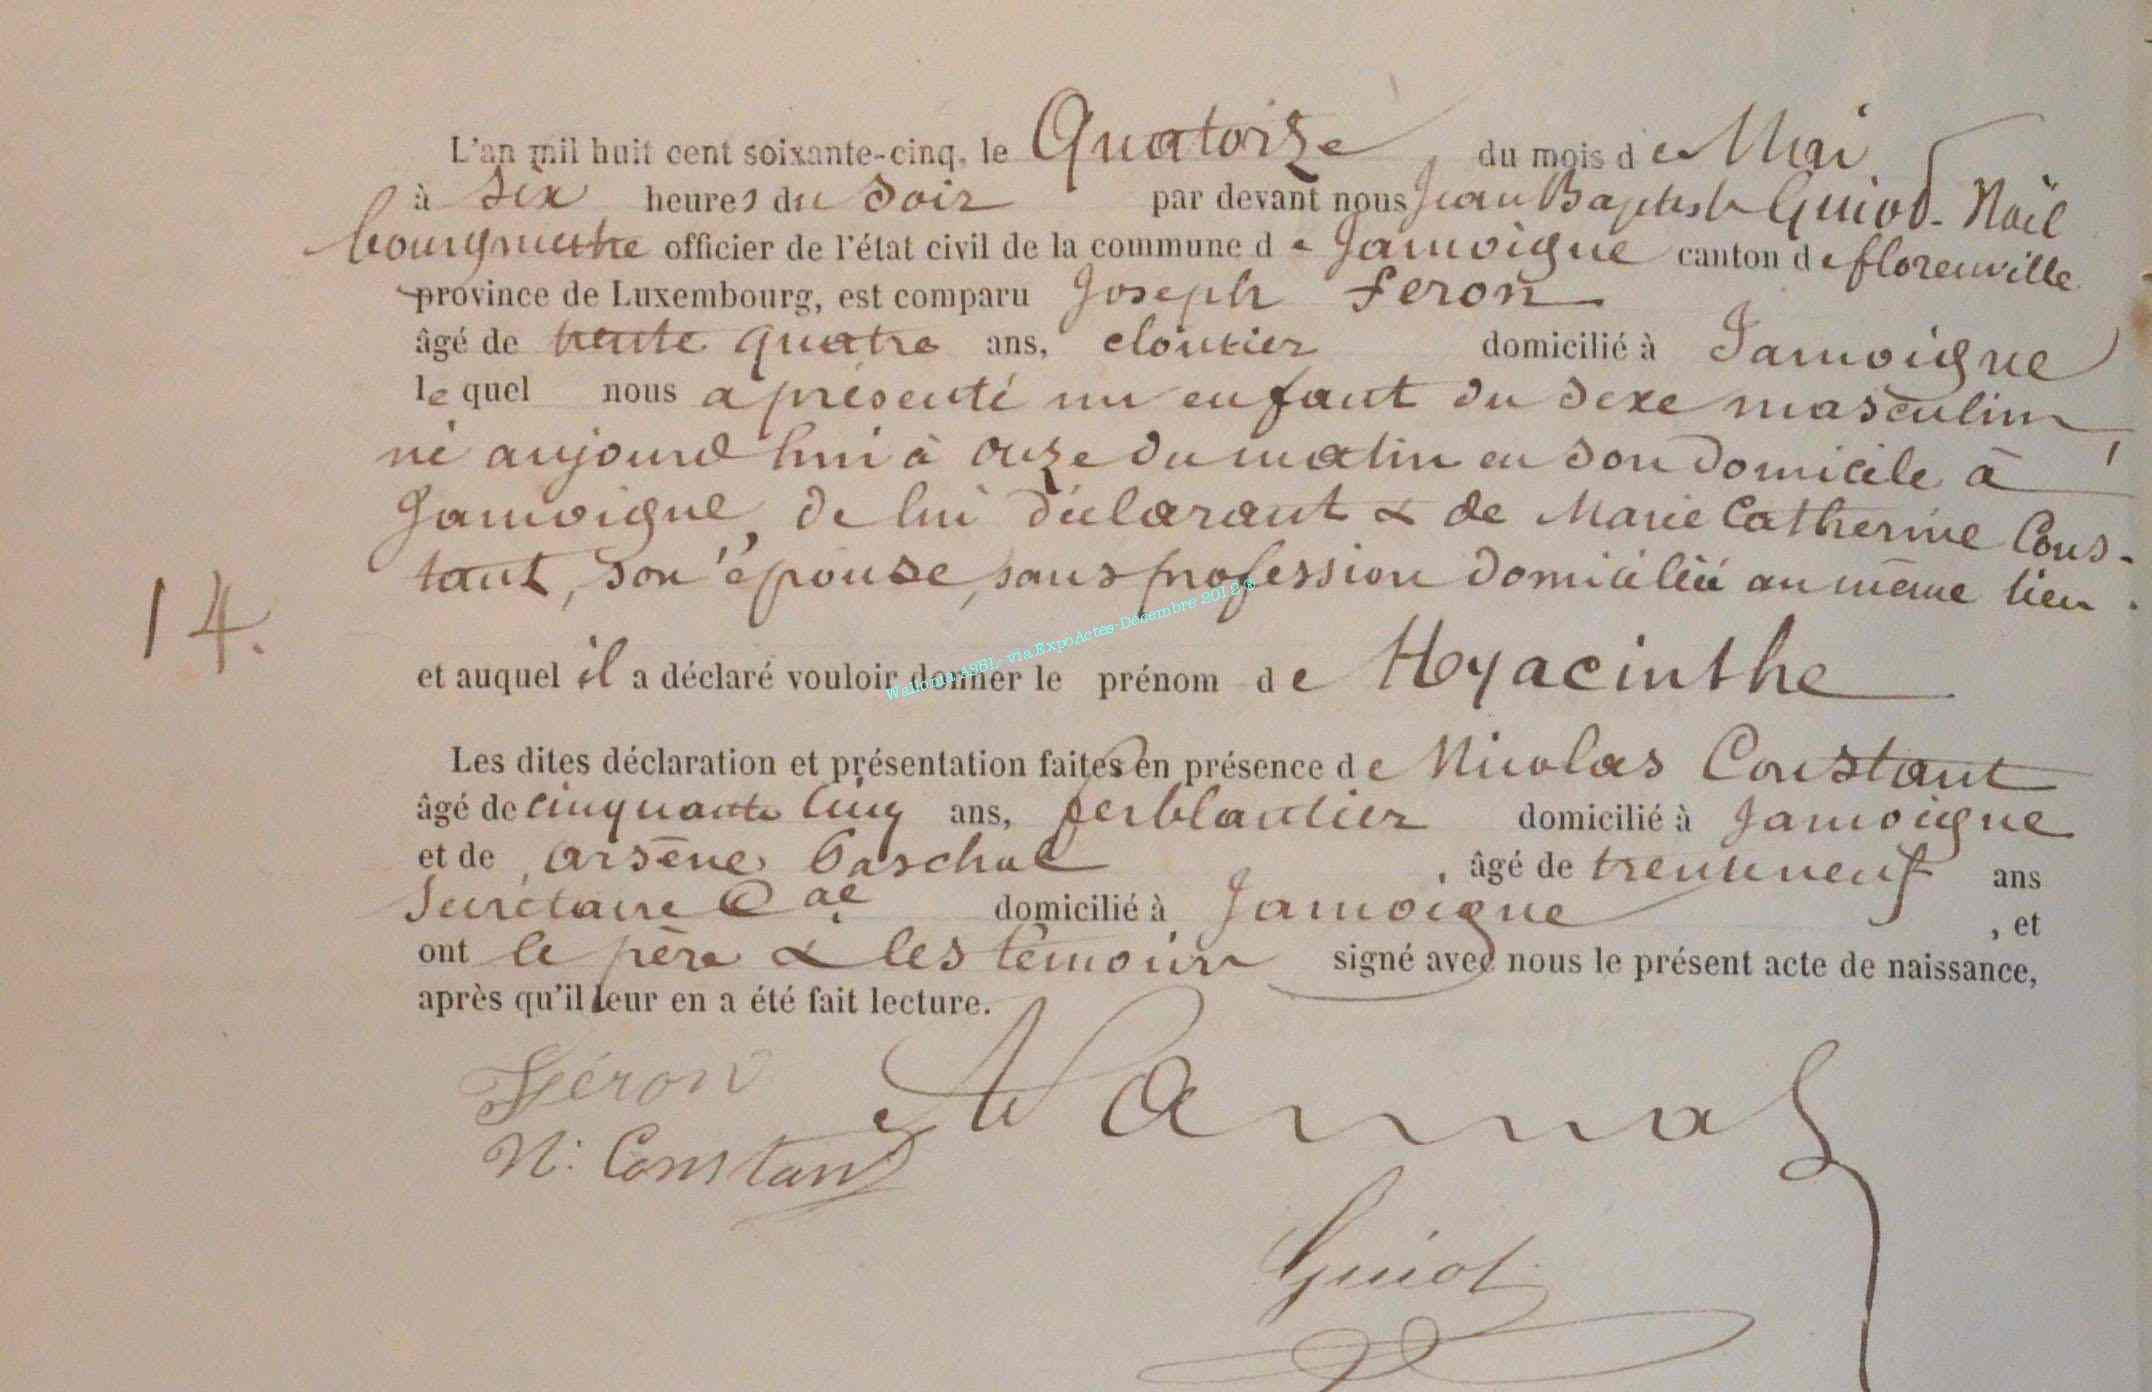 L'an mil huit cent soixante-cinq, le Quatorze du mois de Mai
à six heures du soir par devant nous Jean Baptiste Guiot-Noël
bourgmestre officier de l'état civil de la commune de Jamoigne canton de florenville
province de Luxembourg, est comparu Joseph feron
âgé de trente quatre ans, cloutier domicilié à Jamoigne
lequel nous a présenté un enfant du sexe masculin,
né aujourd'hui à onze du matin en son domicile à
Jamoigne, de lui déclarant & de Marie Catherine Cons-
tant, son épouse, sans profession domiciliée au même lieu.
14.
et auquel il a déclaré vouloir donner le prénom de Hyacinthe
Wallonia ASBL- via ExpoActes-Décembre 2012
Les dites déclaration et présentation faites en présence de Nicolas Constant
âgé de cinquante cinq ans, ferblantier domicilié à Jamoigne
et de Arsène Paschal, âgé de trente neuf ans
Secrétaire Cal domicilié à Jamoigne, et
ont le père & les témoins signé avec nous le présent acte de naissance,
après qu'il leur en a été fait lecture.
Féron
N: Constant
Guiot